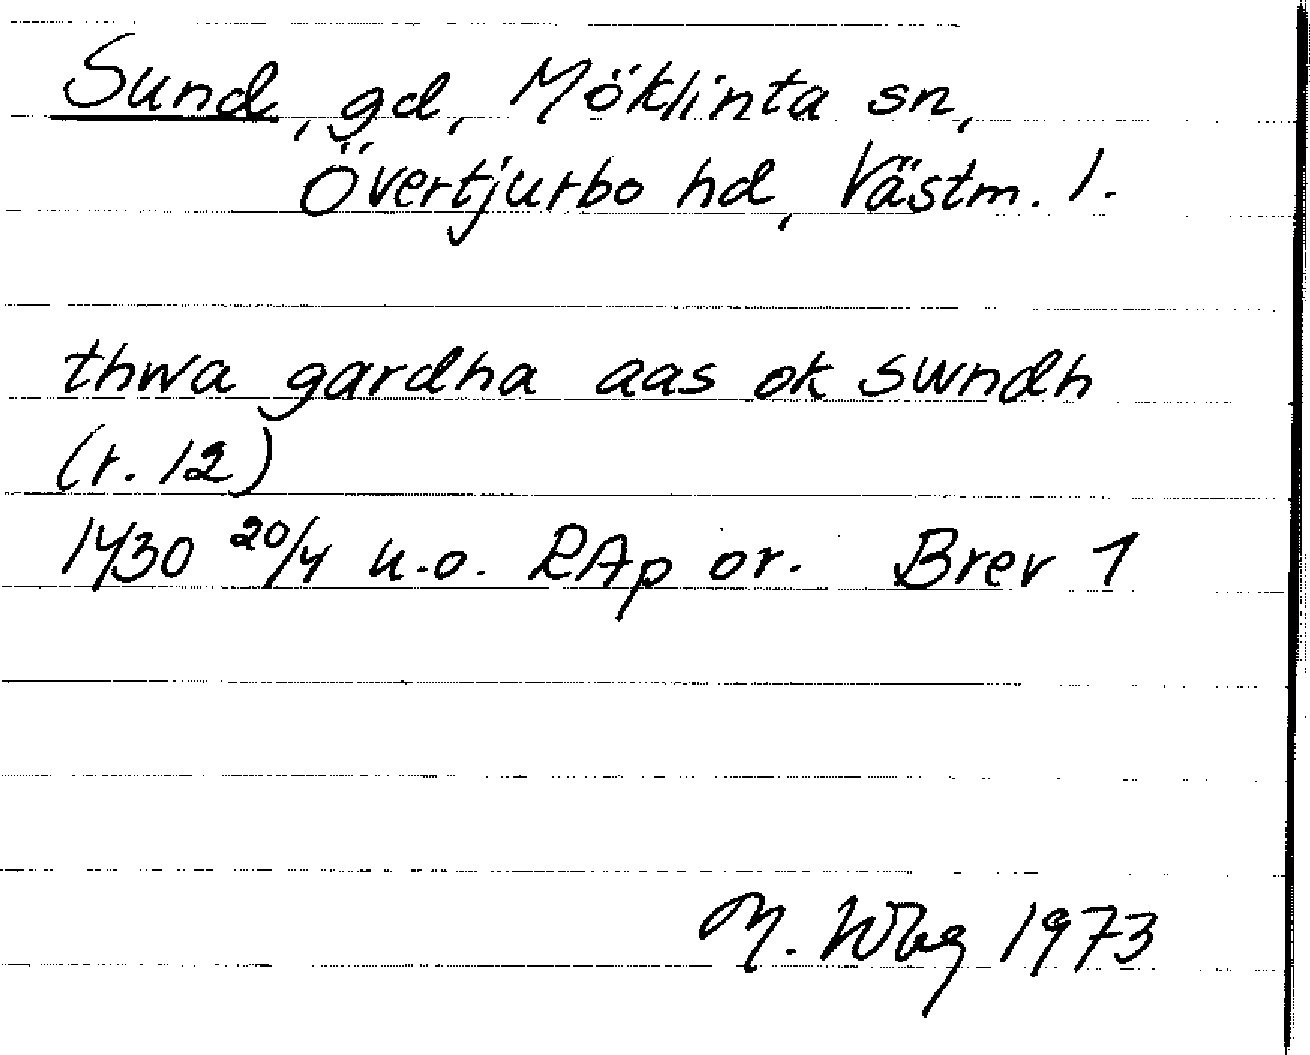 Sund, gd, Möklinta sn,
Övertjurbo hd, Västm. l.
thwa gardha aas ok swndh
(r. 12)
1430 20/4 u.o. RAp or. Brev 1
M. Wbg 1973